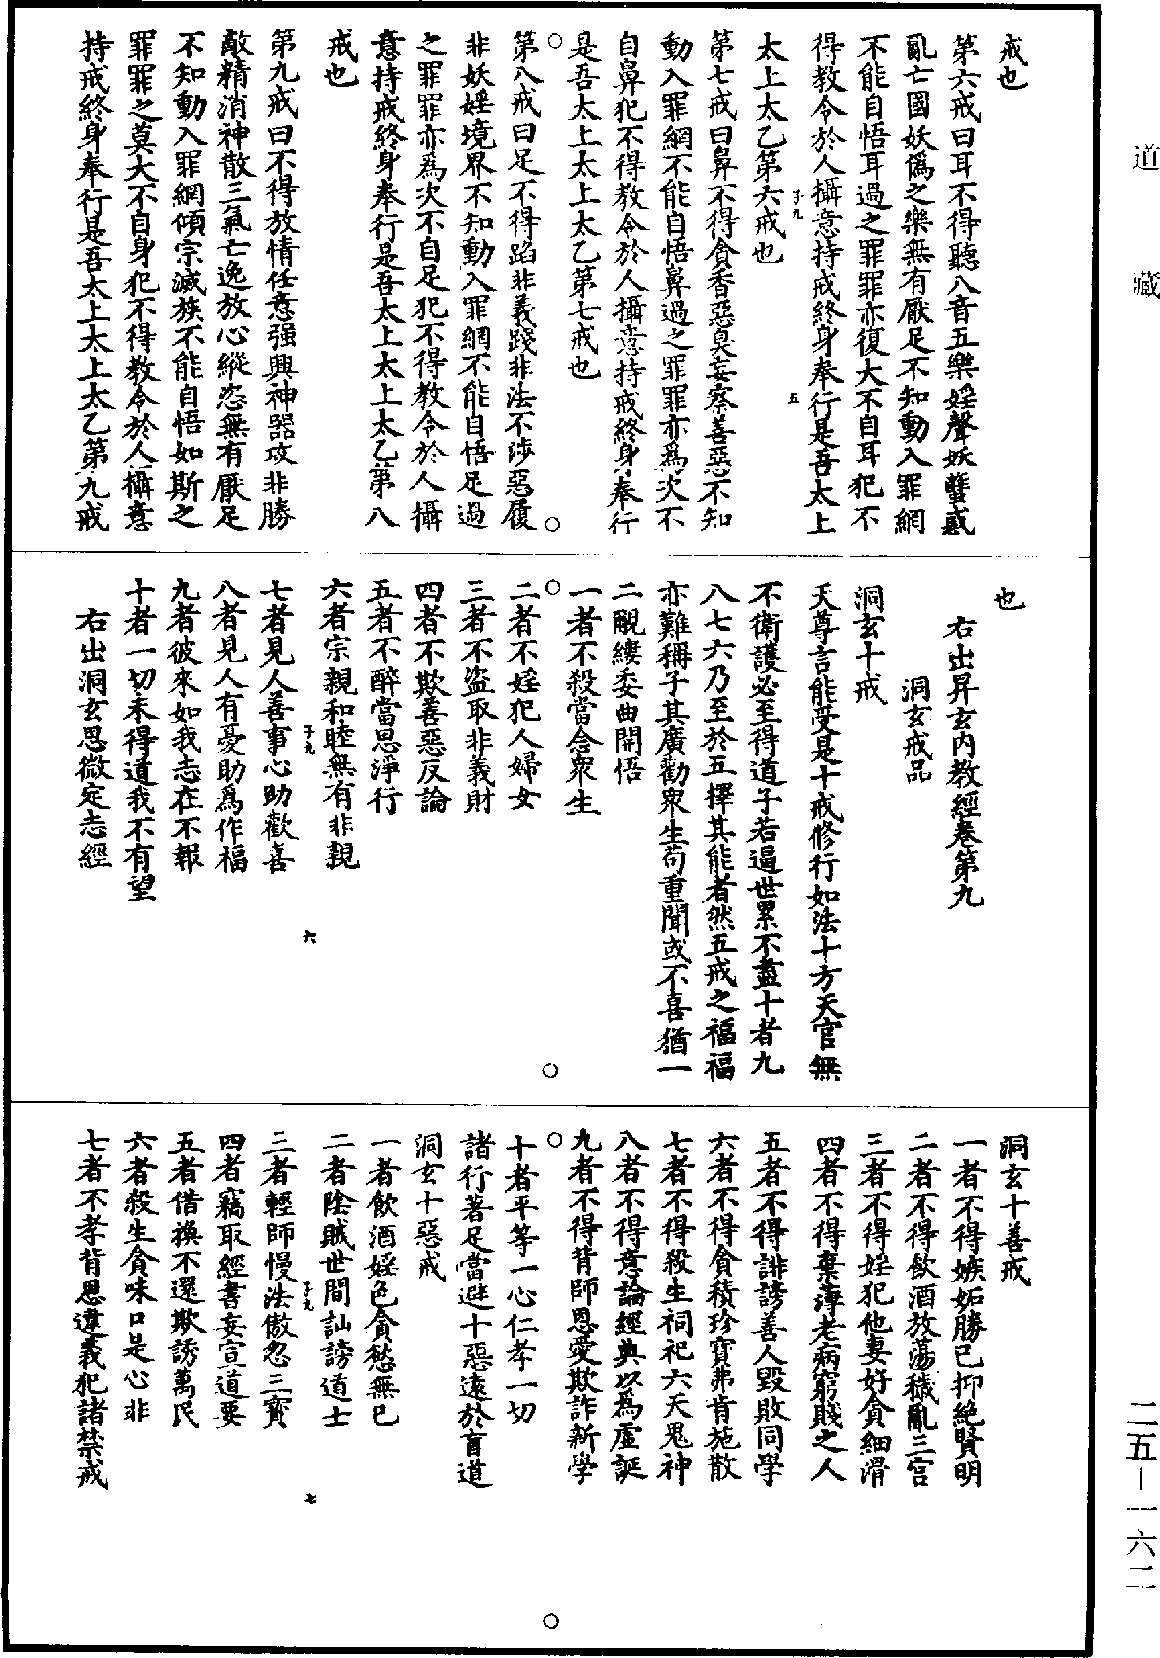 道藏
戒也
第六戒曰耳不得聽八音五樂婬聲妖蠱惑
亂亡國妖僞之樂無有厭足不知動入罪網
不能自悟耳過之罪罪亦復大不自耳犯不
得教令於人攝意持戒終身奉行是吾太上
子九
五
太上太乙第六戒也
第七戒曰鼻不得貪香惡臭妄察善惡不知
動入罪網不能自悟鼻過之罪罪亦爲次不
自鼻犯不得教令於人攝意持戒終身奉行
是吾太上太上太乙第七戒也
第八戒曰足不得蹈非義踐非法不涉惡履
非妖婬境界不知動入罪網不能自悟足過
之罪罪亦爲次不自足犯不得教令於人攝
意持戒終身奉行是吾太上太上太乙第八
戒也
第九戒曰不得放情任意强興神器攻非勝
敵精消神散三氣亡逸放心縱恣無有厭足
不知動入罪網傾宗滅族不能自悟如斯之
罪罪之莫大不自身犯不得教令於人攝意
持戒終身奉行是吾太上太上太乙第九戒
也
右出昇玄內教經卷第九
洞玄戒品
洞玄十戒
天尊言能受是十戒修行如法十方天官無
不衛護必至得道子若逼世累不盡十者九
八七六乃至於五擇其能者然五戒之福福
亦難稱子其廣勸衆生苟重聞或不喜猶一
二覼縷委曲開悟
一者不殺當念衆生
二者不婬犯人婦女
三者不盜取非義財
四者不欺善惡反論
五者不醉當思淨行
六者宗親和睦無有非親
子九
六
七者見人善事心助歡喜
八者見人有憂助爲作福
九者彼來加我志在不報
十者一切未得道我不有望
右出洞玄思微定志經
洞玄十善戒
一者不得嫉妬勝已抑絶賢明
二者不得飲酒放蕩穢亂三宮
三者不得婬犯他妻好貪細滑
四者不得棄薄老病窮賤之人
五者不得誹謗善人毀敗同學
六者不得貪積珍寶弗肯施散
七者不得殺生祠祀六天鬼神
八者不得意論經典以爲虛誕
九者不得背師恩愛欺詐新學
十者平等一心仁孝一切
諸行著足當避十惡遠於盲道
洞玄十惡戒
一者飲酒婬色貪慾無已
二者陰賊世間訕謗道士
子九
七
三者輕師慢法傲忽三寶
四者竊取經書妄宣道要
五者借換不還欺誘萬民
六者殺生貪味口是心非
七者不孝背恩違義犯諸禁戒
二五－一六二